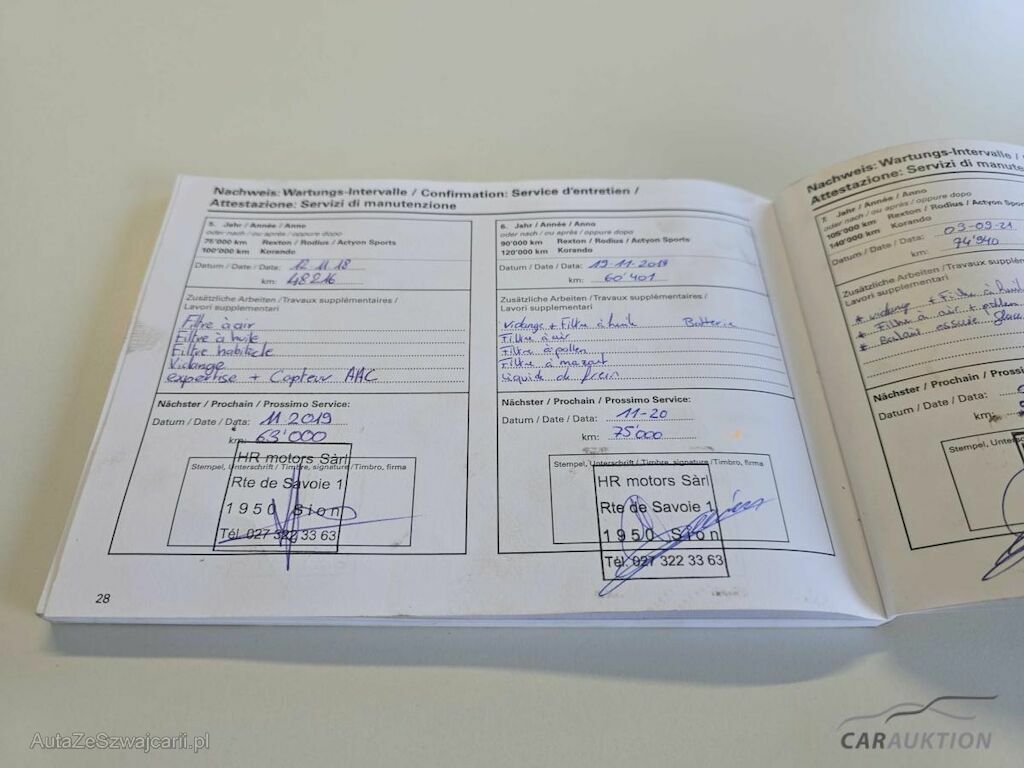 Nachweis: Wartungs-Intervalle / Confirmation: Service d'entretien /
Attestazione: Servizi di manutenzione
5. Jahr / Année / Anno
oder nach / ou après / oppure dopo
75'000 km Rexton / Rodius / Actyon Sports
100'000 km Korando
Datum / Date / Data: 12.11.18
km: 48216
Zusätzliche Arbeiten / Travaux supplémentaires /
Lavori supplementari
Filtre à air
Filtre à huile
Filtre habitacle
Vidange
expertise + Capteur AAC
Nächster / Prochain / Prossimo Service:
Datum / Date / Data: 11 2019
km: 63'000
Stempel, Unterschrift / Timbre, signature / Timbro, firma
HR motors Sàrl
Rte de Savoie 1
1950 Sion
Tél. 027 322 33 63
28
6. Jahr / Année / Anno
oder nach / ou après / oppure dopo
90'000 km Rexton / Rodius / Actyon Sports
120'000 km Korando
Datum / Date / Data: 19-11-2019
km: 60'401
Zusätzliche Arbeiten / Travaux supplémentaires /
Lavori supplementari
Vidange + Filtre à huile Batterie
Filtre à air
Filtre à pollen
Filtre à mazout
Liquide de frein
Nächster / Prochain / Prossimo Service:
Datum / Date / Data: 11-20
km: 75'000
Stempel, Unterschrift / Timbre, signature / Timbro, firma
HR motors Sàrl
Rte de Savoie 1
1950 Sion
Tél. 027 322 33 63
Nachweis: Wartungs-Intervalle /
Attestazione: Servizi di
7. Jahr / Année / Anno
oder nach / ou après / oppure dopo
105'000 km Rexton / Rodius / Actyon
140'000 km Korando
Datum / Date / Data: 03-09-21
km: 74'940
Zusätzliche Arbeiten / Travaux
Lavori supplementari
* vidange + Filtre à huile
* Filtre à air + pollen
* Balant essuie glace
Nächster / Prochain /
Datum / Date / Data:
km:
Stempel,
AutaZeSzwajcarii.pl
CARAUKTION